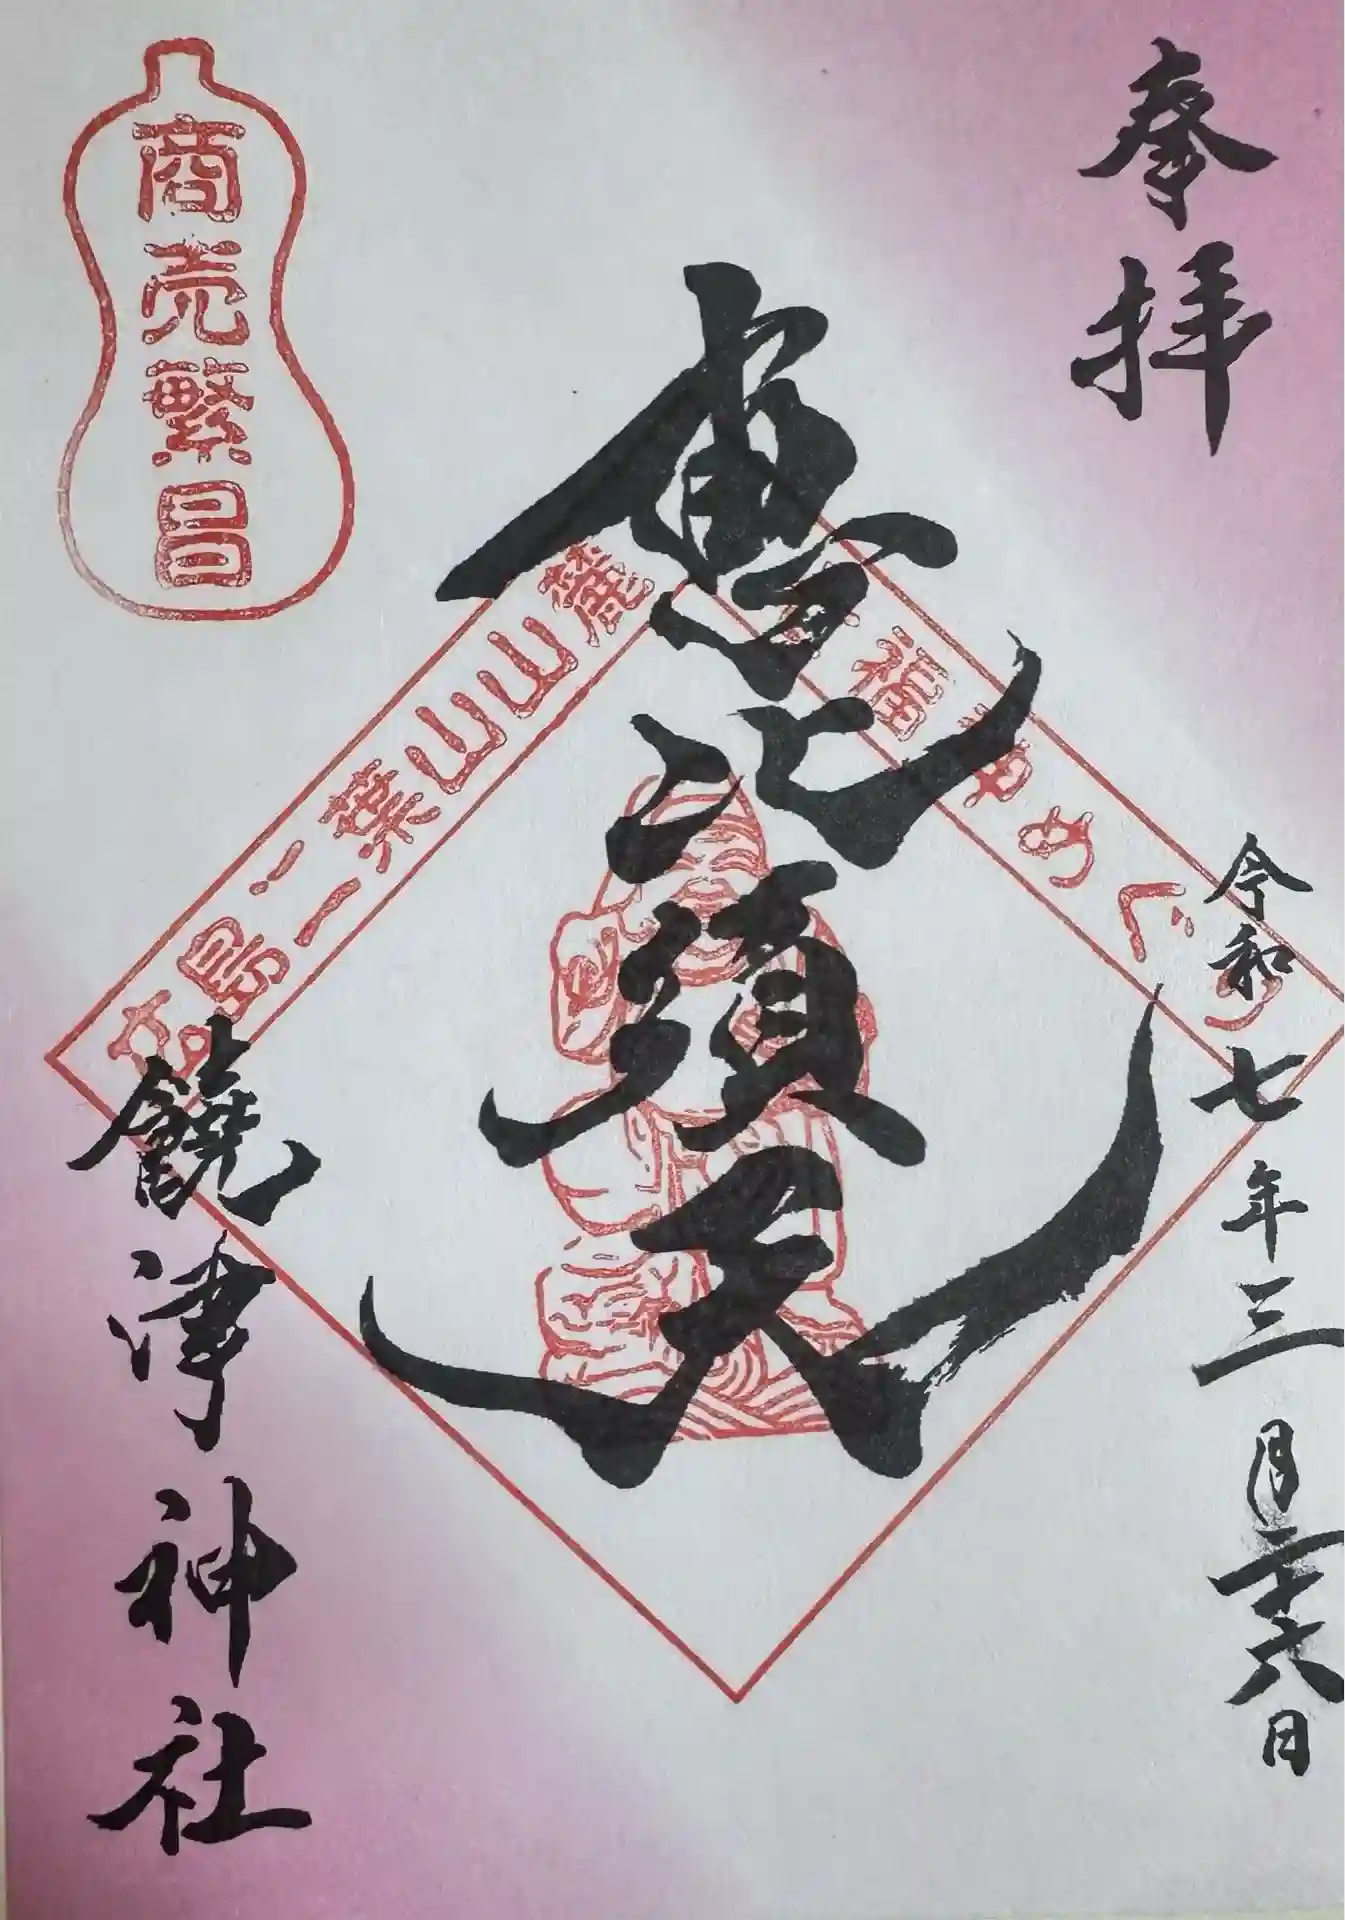 奉拝
令和七年三月二十六日
恵比須天
福神めぐり
広島二葉山山麓
商売繁昌
饒津神社